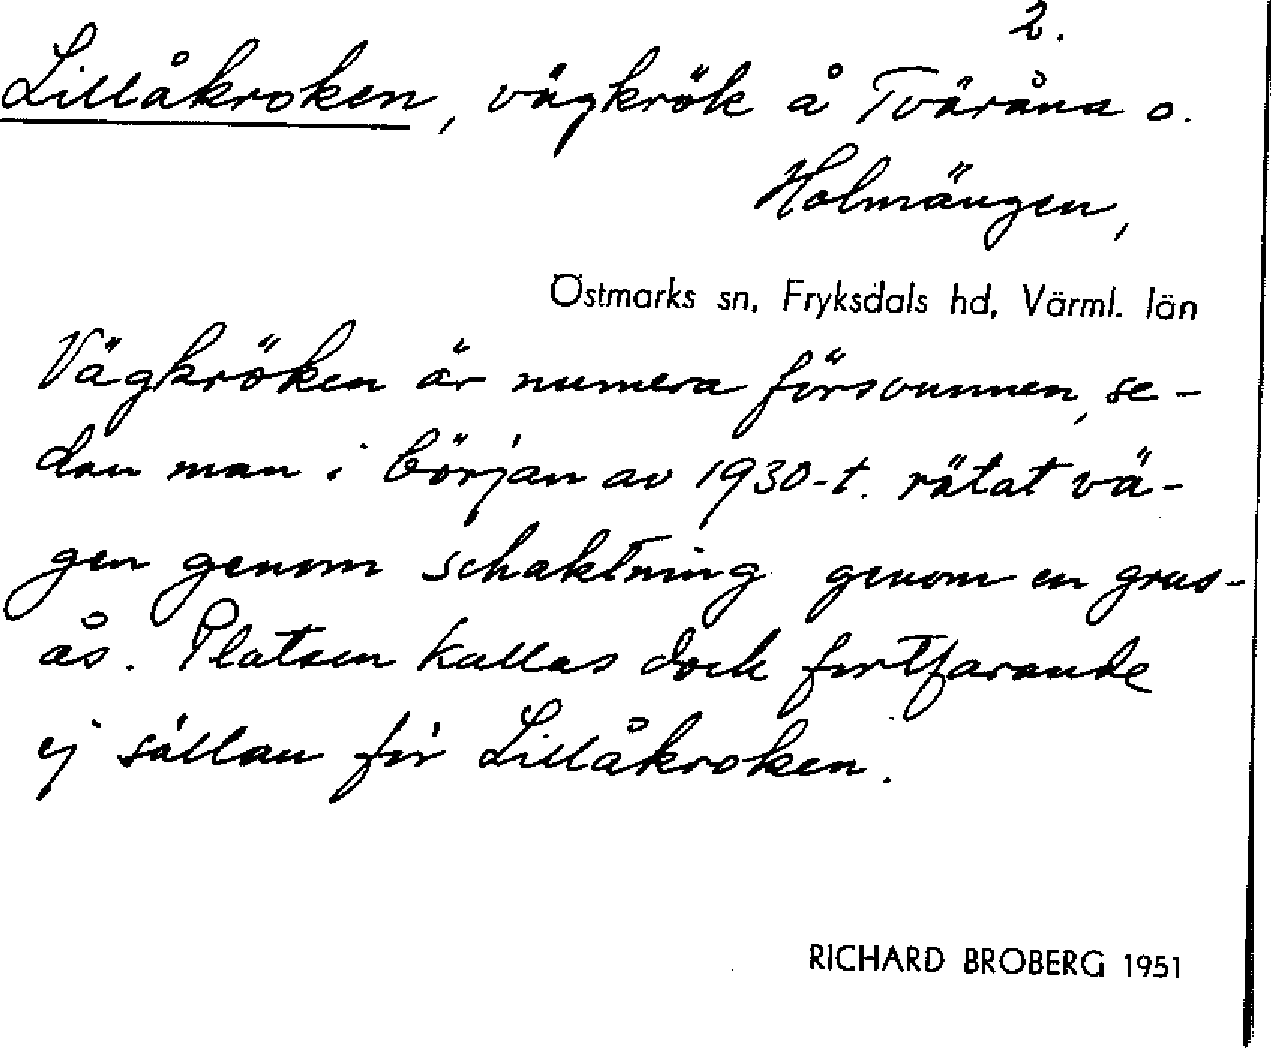 2.
Lillåkroken, vägkrök å Tväråna o.
Holmängen,
Östmarks sn, Fryksdals hd, Värml. län
Vägkröken är numera försvunnen, se-
dan man i början av 1930-t. rätat vä-
gen genom schaktning genom en grus-
ås. Platsen kallas dock fortfarande
ej sällan för Lillåkroken.
RICHARD BROBERG 1951